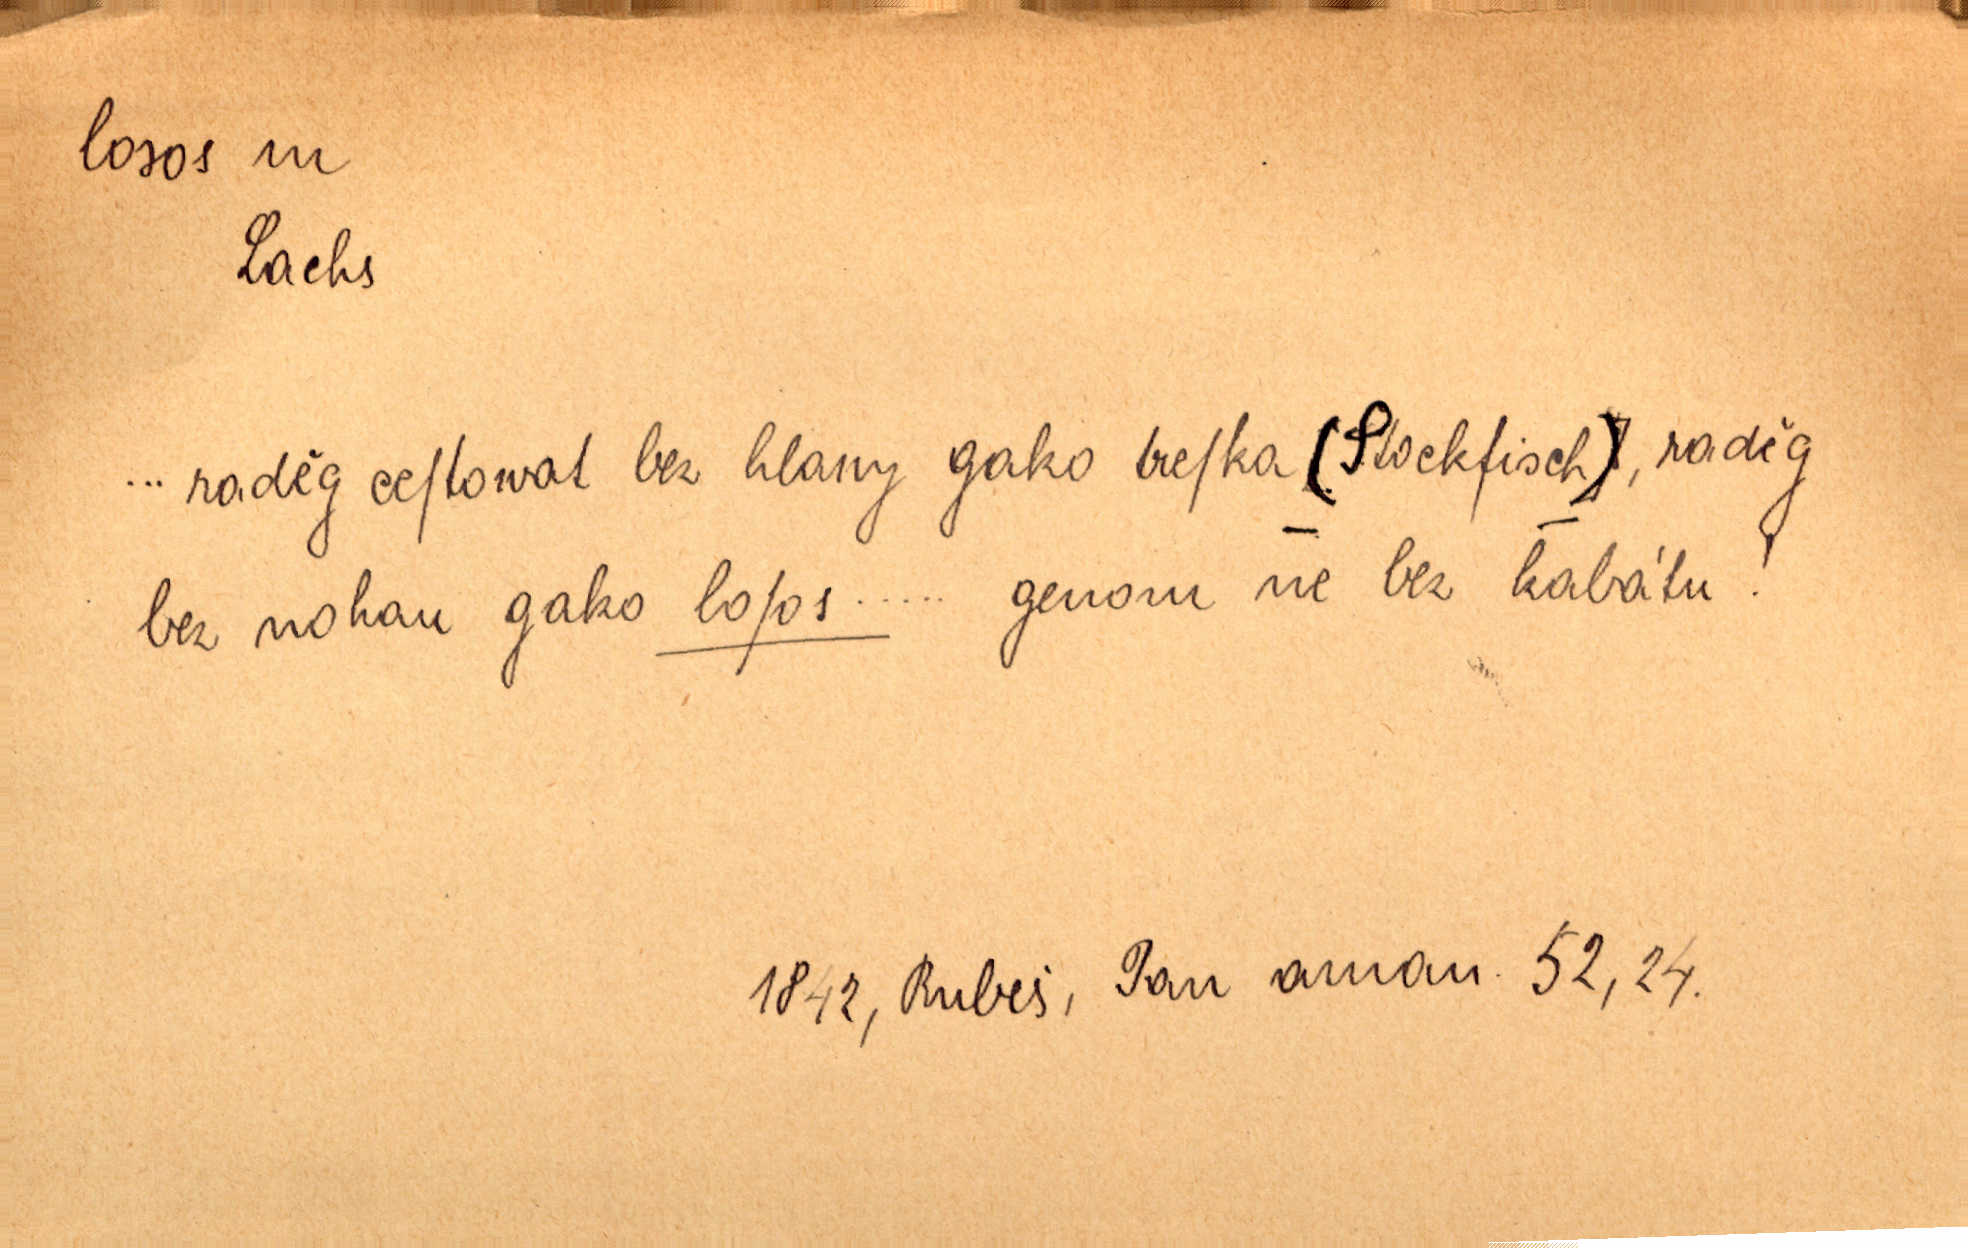 losos m
Lachs
... raděg ceſtowat bez hlawy gako treſka (Stockfisch), raděg
bez nohau gako loſos ..... genom ne bez kabátu!
1842, Rubeš, Pan aman. 52, 24.